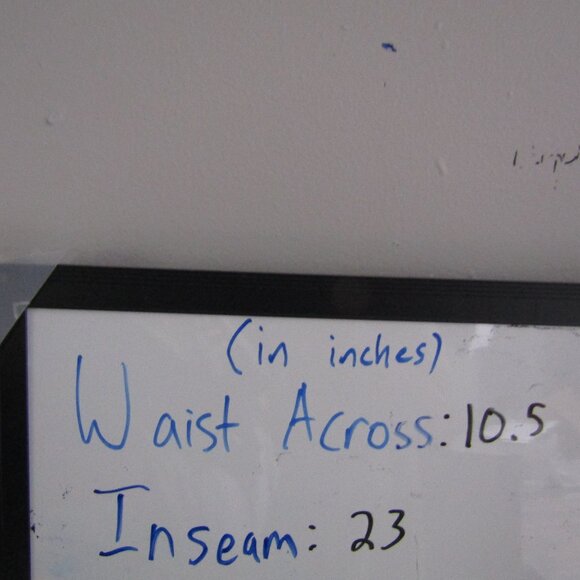 (in inches)
Waist Across: 10.5
Inseam: 23